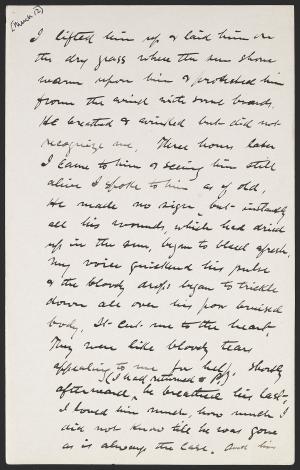 (March 2)
I lifted him up & laid him on
the dry grass where the sun shone
warm upon him & protected him
from the wind with some boards.
He breathed & winked but did not
recognize me. Three hours later
I came to him & seeing him still
alive I spoke to him as of old,
He made no sign, but instantly
all his wounds, which had dried
up in the sun, began to bleed afresh.
My voice quickened his pulse
& the bloody drops began to trickle
down all over his poor bruised
body. It cut me to the heart.
They were like bloody tears
appealing to me for help. Shortly
(I had returned to)
afterward, he breathed his last,
I loved him much, how much I
did not know till he was gone
as is always the case. And his